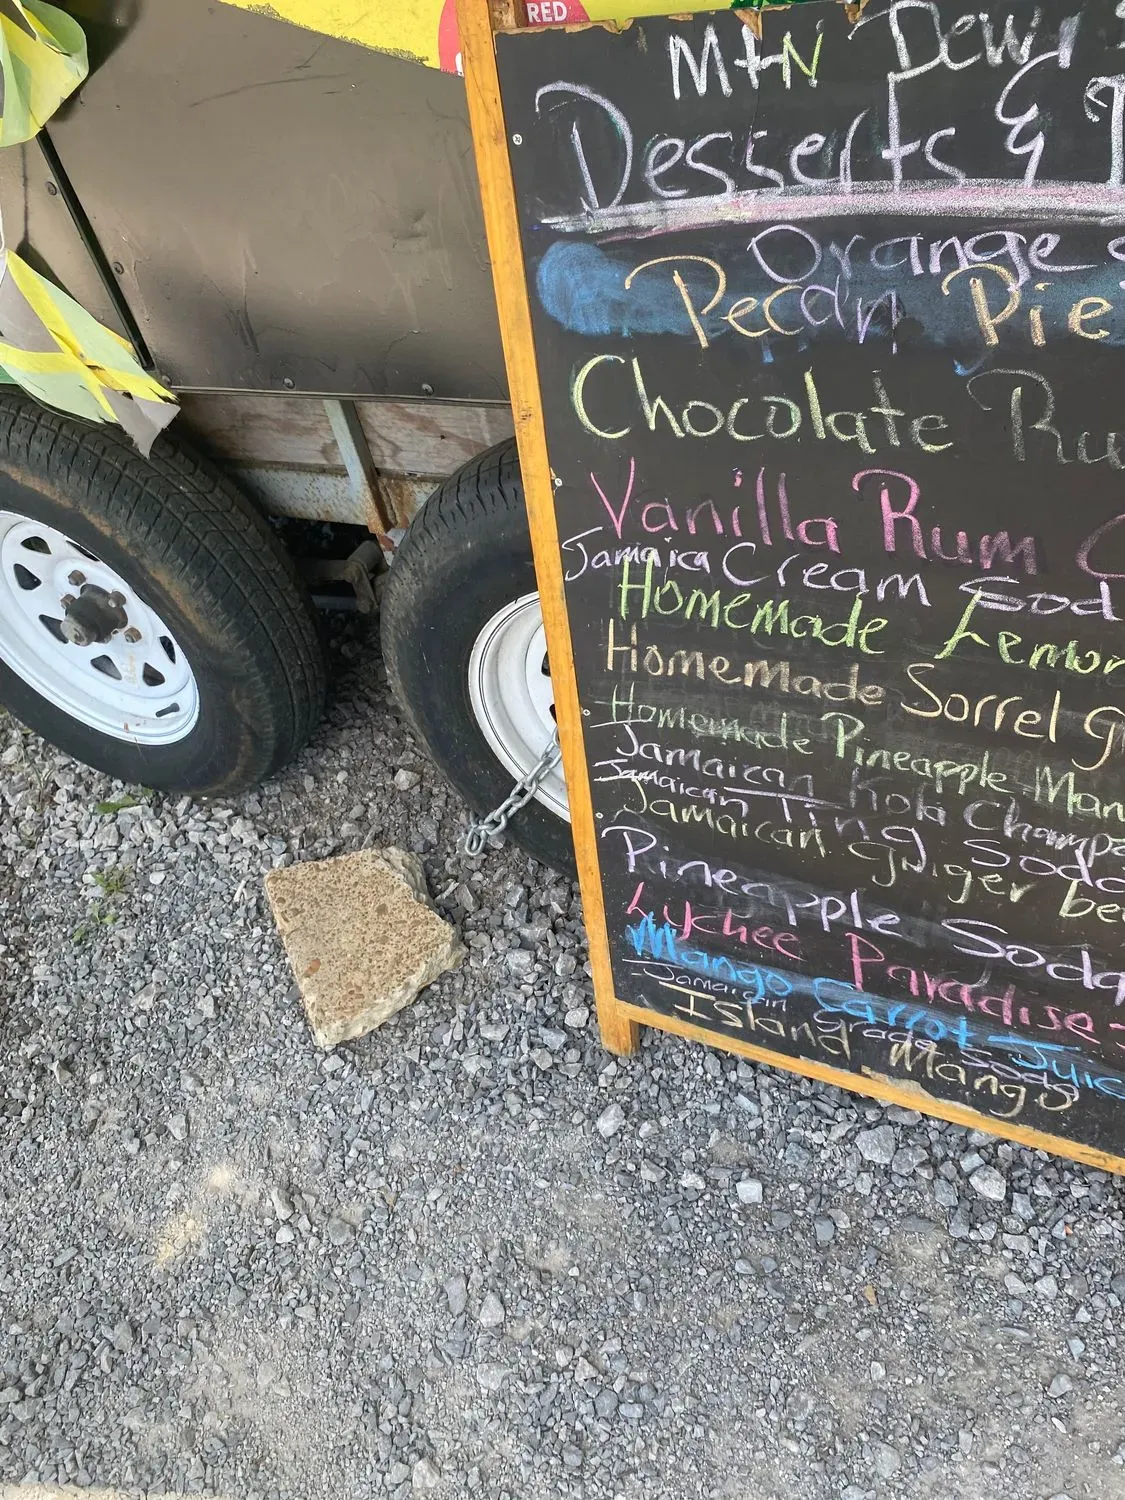 RED
MtN Dew
Desserts &
Orange
Pecan Pie
Chocolate Ru
Vanilla Rum C
Jamaica Cream Sod
Homemade Lemon
Homemade Sorrel g
Homemade Pineapple Man
Jamaican Kola Champa
Jamaican Ting Soda
Jamaican GNiger bee
Pineapple Soda
Lychee Paradise
Mango Carrot Juic
Jamaican grada Soda
Island Mango